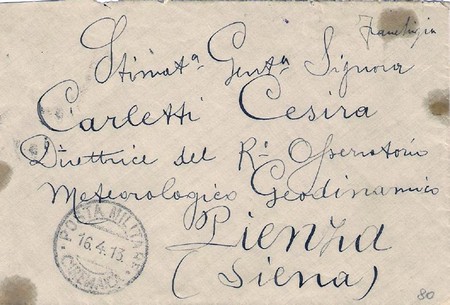 Franchigia
Stimatª Gentª Signora
Carletti Cesira
Direttrice del Rº Osservatorio
Meteorologico Geodinamico
Pienza
(Siena)
POSTA MILITARE
16.4.13
80